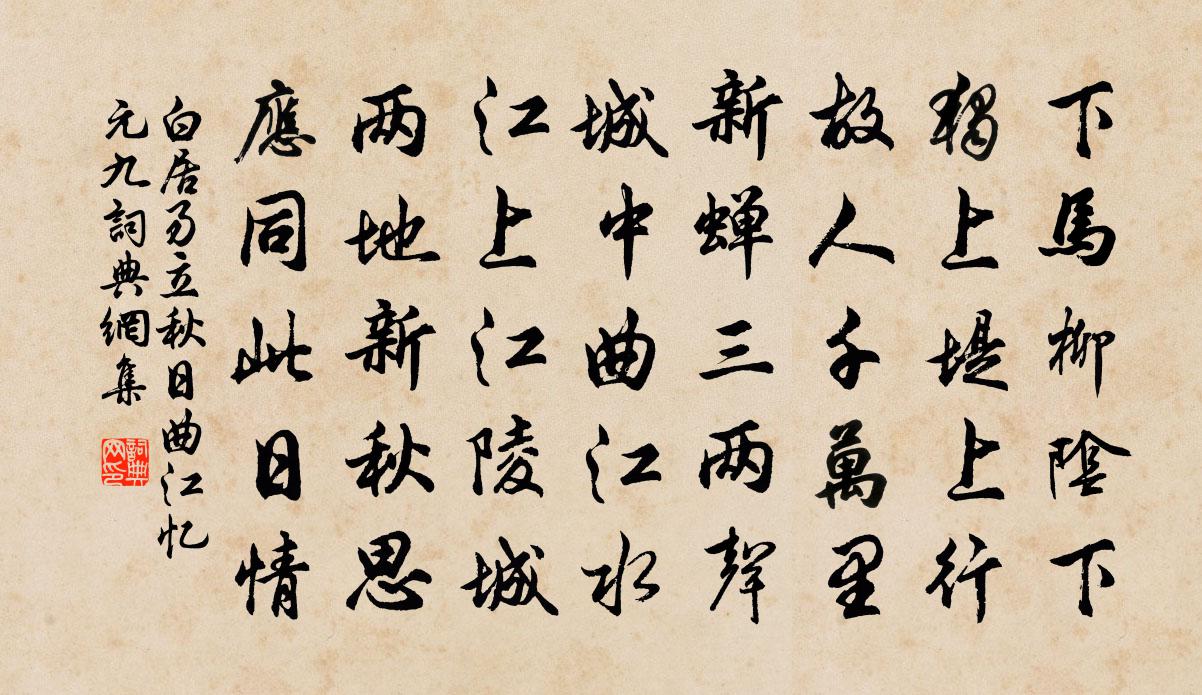 下馬柳陰下
獨上堤上行
故人千萬里
新蝉三两聲
城中曲江水
江上江陵城
两地新秋思
應同此日情
白居易立秋日曲江忆
元九詞典網集
詞典
网印